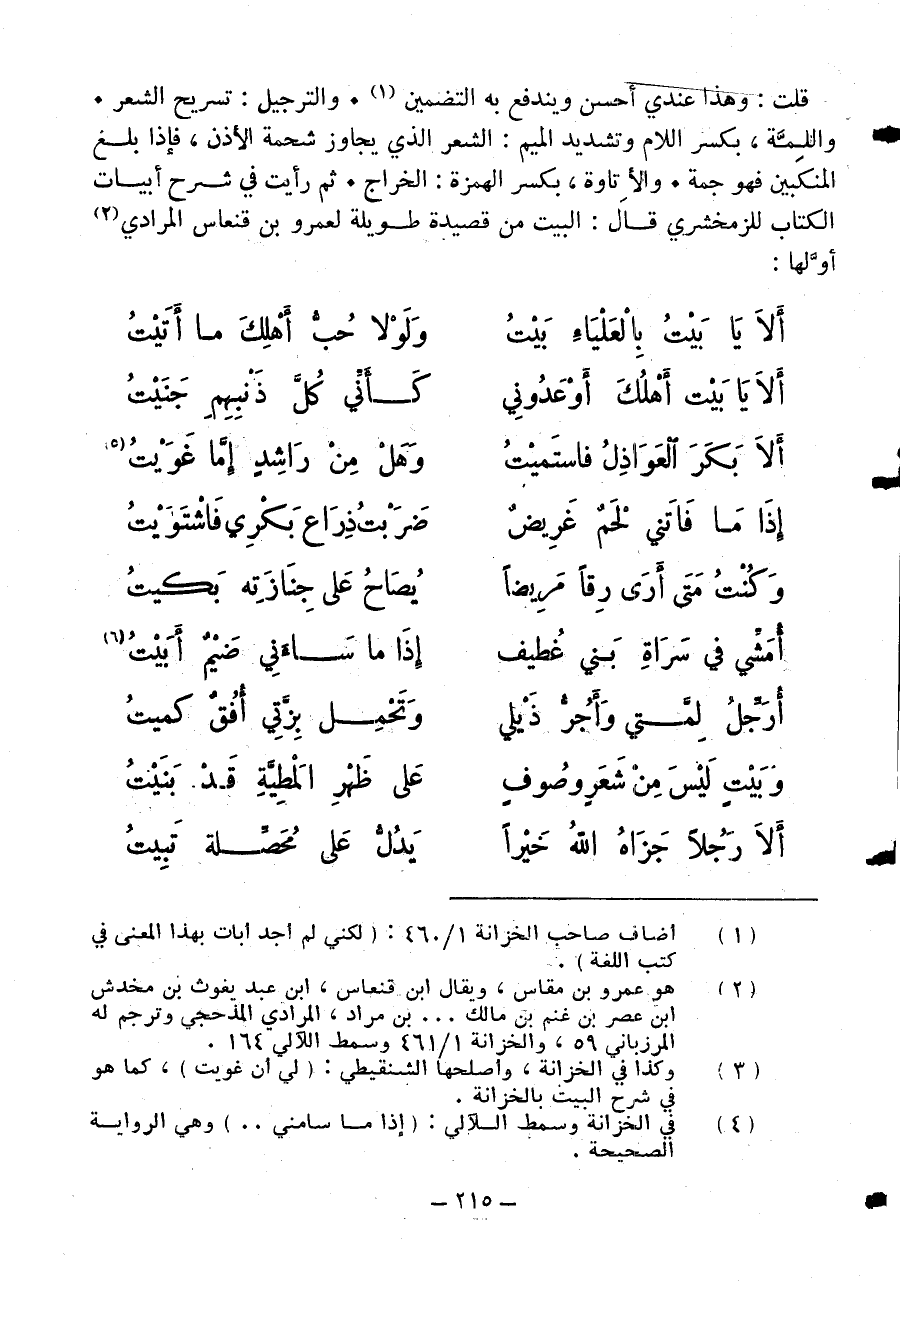 قلت : وهذا عندي أحسن ويندفع به التضمين (١) • والترجيل : تسريح الشعر •
واللِمَّة ، بكسر اللام وتشديد الميم : الشعر الذي يجاوز شحمة الأذن ، فإذا بلغ
المنكبين فهو جمة • والأتاوة ، بكسر الهمزة : الخراج • ثم رأيت في شرح أبيات
الكتاب للزمخشري قال : البيت من قصيدة طويلة لعمرو بن قنعاس المرادي (٢)
أوَّلها :
أَلاَ يَا بَيْتُ بِالْعَلْيَاءِ بَيْتُ وَلَوْلا حُبُّ أَهْلِكَ ما أَتَيْتُ
أَلاَ يَا بَيْت أَهْلُكَ أَوْعَدُوني كَأَنِّي كُلَّ ذَنْبِهِم جَنَيْتُ
أَلاَ بَكَرَ الْعَوَاذِلُ فاستَميْتُ وَهَلْ مِنْ رَاشِدٍ إِمَّا غَوَيْتُ (٥)
إِذَا مَا فَاتَني لَحْمٌ غَرِيضٌ ضَرَبْتُ ذِرَاع بَكْرِي فَاشْتَوَيْتُ
وَكُنْتُ مَتَى أَرَى رِقاً مَرِيضاً يُصَاحُ عَلى جِنَازَتِه بَكَيتُ
أُمَشِّي في سَرَاةِ بَني غُطيف إِذَا ما سَاءَني ضَيْمٌ أَبَيْتُ (٦)
أُرَجِّلُ لِمَّتي وَأَجُرُّ ذَيْلي وَتَحْمِل بِزَّتي أُفُقٌ كميتُ
وَبَيْتٍ لَيْسَ مِنْ شَعَرٍ وصُوفٍ عَلى ظَهْرِ المَطِيَّةِ قَدْ بَنَيْتُ
أَلاَ رَجُلاً جَزَاهُ اللهُ خَيْراً يَدُلُّ عَلى مُحَصِّلة تَبيتُ
(١) أضاف صاحب الخزانة ٤٦٠/١ : ( لكني لم أجد أبات بهذا المعنى في
كتب اللغة ) .
(٢) هو عمرو بن مقاس ، ويقال ابن قنعاس ، ابن عبد يغوث بن مخدش
ابن عصر بن غنم بن مالك ... بن مراد ، المرادي المذحجي وترجم له
المرزباني ٥٩ ، والخزانة ٤٦١/١ وسمط اللآلي ١٦٤ .
(٣) وكذا في الخزانة ، وأصلحها الشنقيطي : ( لي أن غويت ) ، كما هو
في شرح البيت بالخزانة .
(٤) في الخزانة وسمط اللآلي : ( إذا ما سامني .. ) وهي الرواية
الصحيحة .
– ٢١٥ –